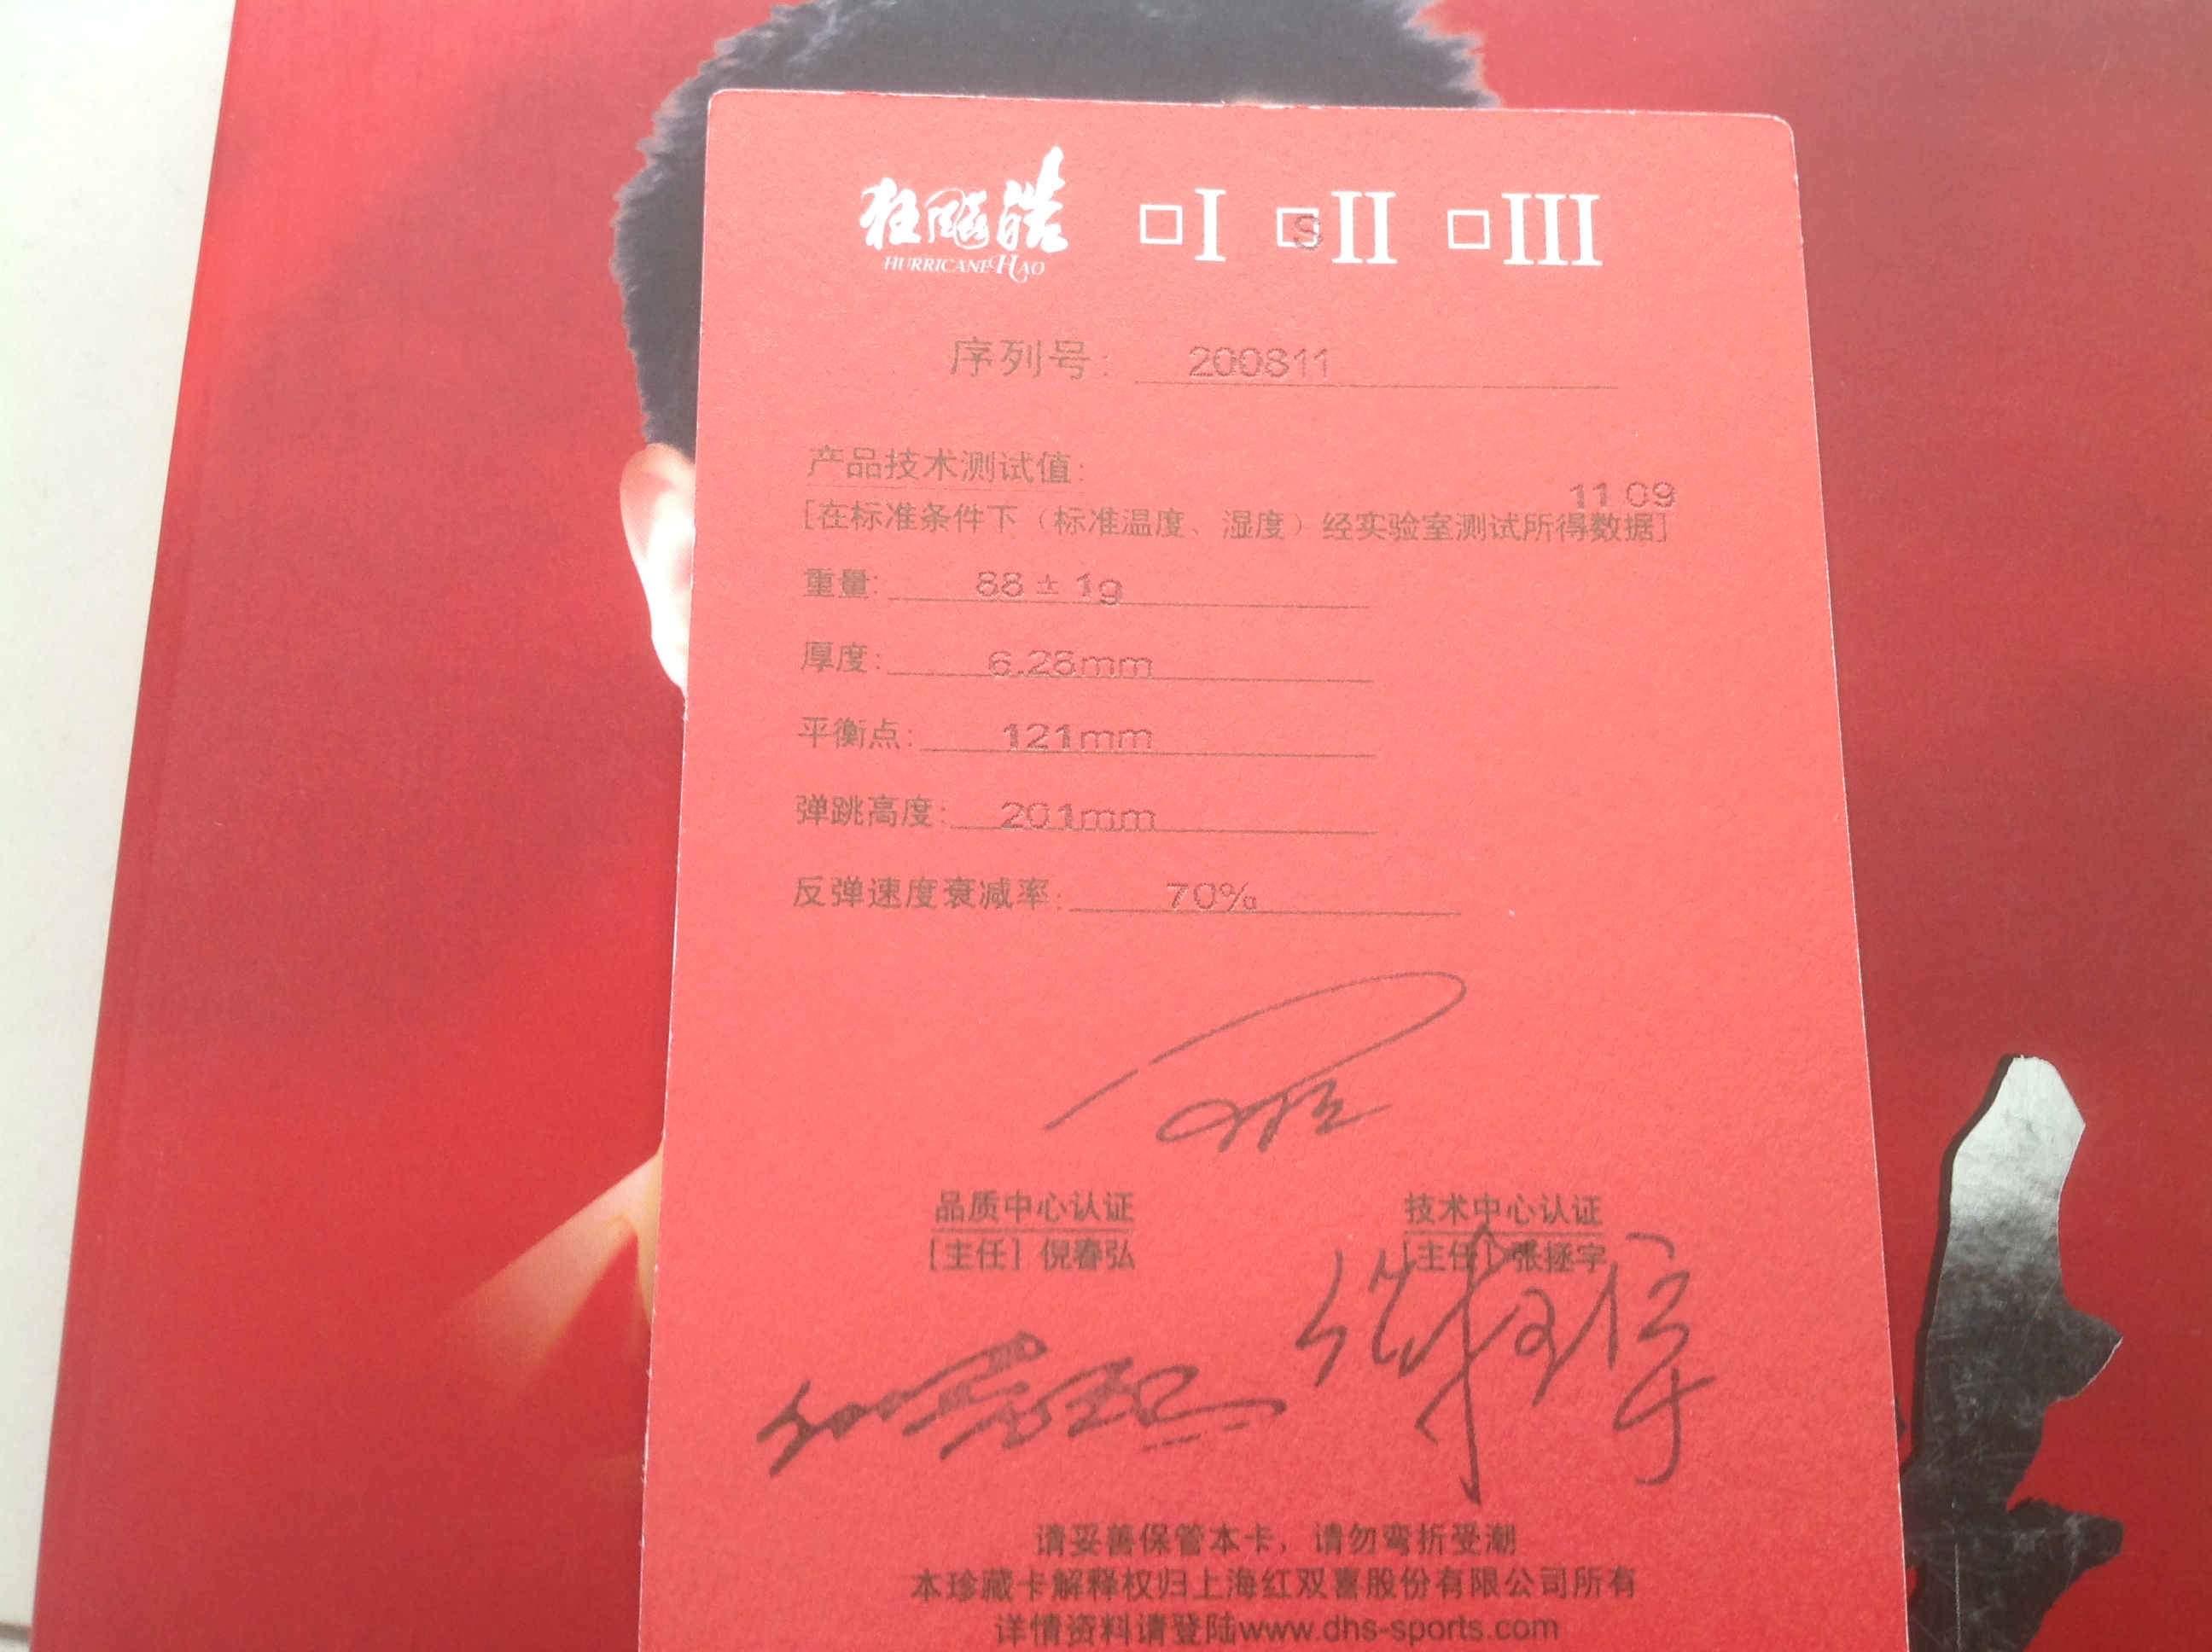 狂飚皓 □I □II □III
S
HURRICANE HAO
序列号: 200811
产品技术测试值:
11 09
[在标准条件下（标准温度、湿度）经实验室测试所得数据]
重量: 88 ± 1g
厚度: 6.28mm
平衡点: 121mm
弹跳高度: 201mm
反弹速度衰减率: 70%
品质中心认证 技术中心认证
[主任] 倪春弘 [主任] 张拯宇
请妥善保管本卡，请勿弯折受潮
本珍藏卡解释权归上海红双喜股份有限公司所有
详情资料请登陆www.dhs-sports.com